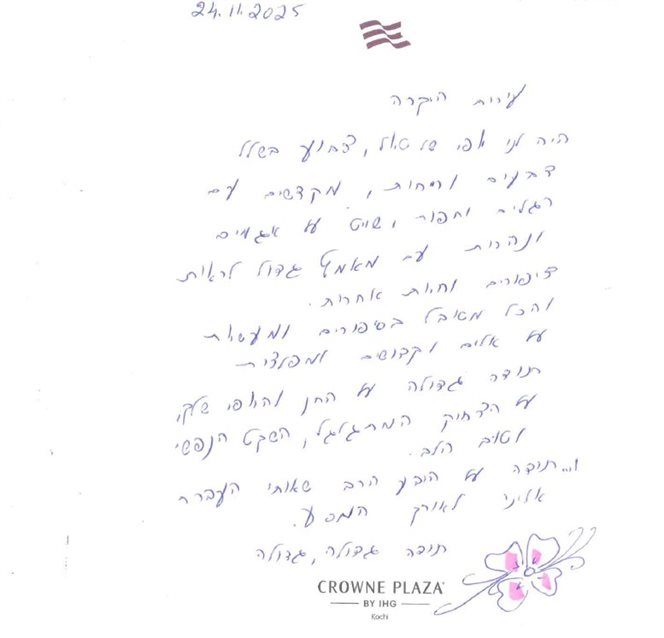 24.11.2025
עירית היקרה
היה לנו אפי של טאל, צבוע בשלל
צבעים וריחות, מקדשים עם
רגלים יחפות, שיט על אגמים
ונהרות עם מאמץ גדול לראות
ציפורים וחיות אחרות.
והכל מאובל בסיפורים ומעשיות
על אלים וקדושים ומפלצות
תודה גדולה על החן והאופי שלך,
על הצחוק המתגלגל, השקט הנפשי
וטוב הלב.
ו... תודה על הידע הרב שאותו העברת
אלינו לאורך המסע.
תודה גדולה, גדולה
CROWNE PLAZA
BY IHG
Kochi